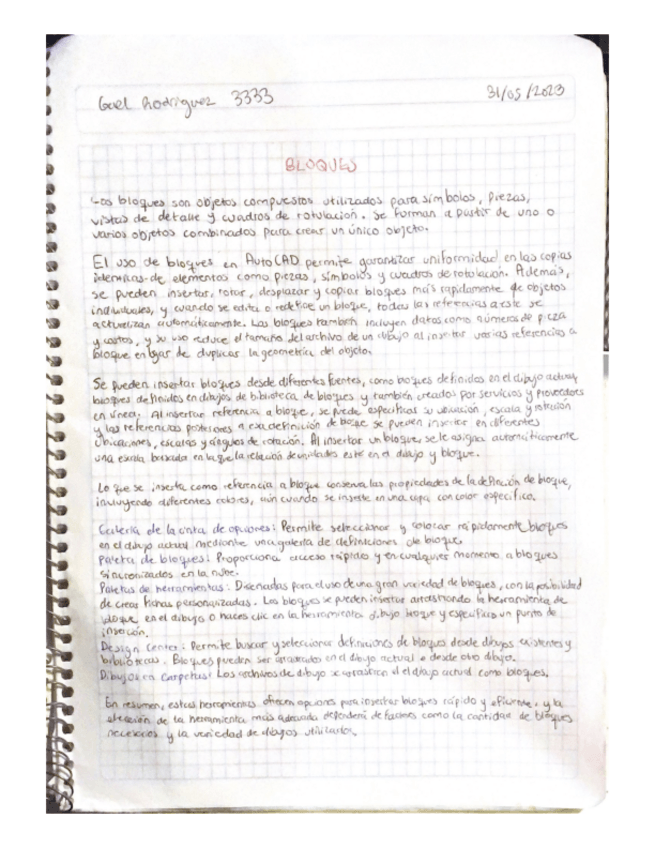 Gael Rodriguez 3333
31/05/2023
BLOQUES
Los bloques son objetos compuestos utilizados para símbolos, piezas,
vistas de detalle y cuadros de rotulación. Se forman a partir de uno o
varios objetos combinados para crear un único objeto.
El uso de bloques en AutoCAD permite garantizar uniformidad en las copias
identicas de elementos como piezas, símbolos y cuadros de rotulación. Además,
se pueden insertar, rotar, desplazar y copiar bloques más rapidamente que objetos
individuales, y cuando se edita o redefine un bloque, todas las referencias a este se
actualizan automáticamente. Los bloques también incluyen datos como números de pieza
y costos, y su uso reduce el tamaño del archivo de un dibujo al insertar varias referencias a
bloque en lugar de duplicar la geometría del objeto.
Se pueden insertar bloques desde diferentes fuentes, como bloques definidos en el dibujo actual,
bloques definidos en dibujos de biblioteca de bloques y también creados por servicios y proveedores
en línea. Al insertar referencia a bloque, se puede especificar su ubicación, escala y rotación
y las referencias posteriores a esa definición de bloque se pueden insertar en diferentes
ubicaciones, escalas y ángulos de rotación. Al insertar un bloque se le asigna automáticamente
una escala basada en la que la relación de unidades esté en el dibujo y bloque.
Lo que se inserta como referencia a bloque conserva las propiedades de la definción de bloque,
incluyendo diferentes colores, aún cuando se inserte en una capa con color específico.
Galería de la cinta de opciones: Permite seleccionar y colocar rápidamente bloques
en el dibujo actual mediante una galería de definiciones de bloque.
Paleta de bloques: Proporciona acceso rápido y en cualquier momento a bloques
sincronizados en la nube.
Paletas de herramientas: Diseñadas para el uso de una gran variedad de bloques, con la posibilidad
de crear fichas personalizadas. Los bloques se pueden insertar arrastrando la herramienta de
bloque en el dibujo o haces clic en la herramienta dibujo bloque y especificas un punto de
inserción.
Design Center: Permite buscar y seleccionar definiciones de bloques desde dibujos existentes y
bibliotecas. Bloques pueden ser arrastrados en el dibujo actual o desde otro dibujo.
Dibujos en carpetas: Los archivos de dibujo se arrastran al dibujo actual como bloques.
En resumen, estas herramientas ofrecen opciones para insertar bloques rápido y eficiente, y la
elección de la herramienta más adecuada dependerá de factores como la cantidad de bloques
necesarios y la variedad de dibujos utilizados.